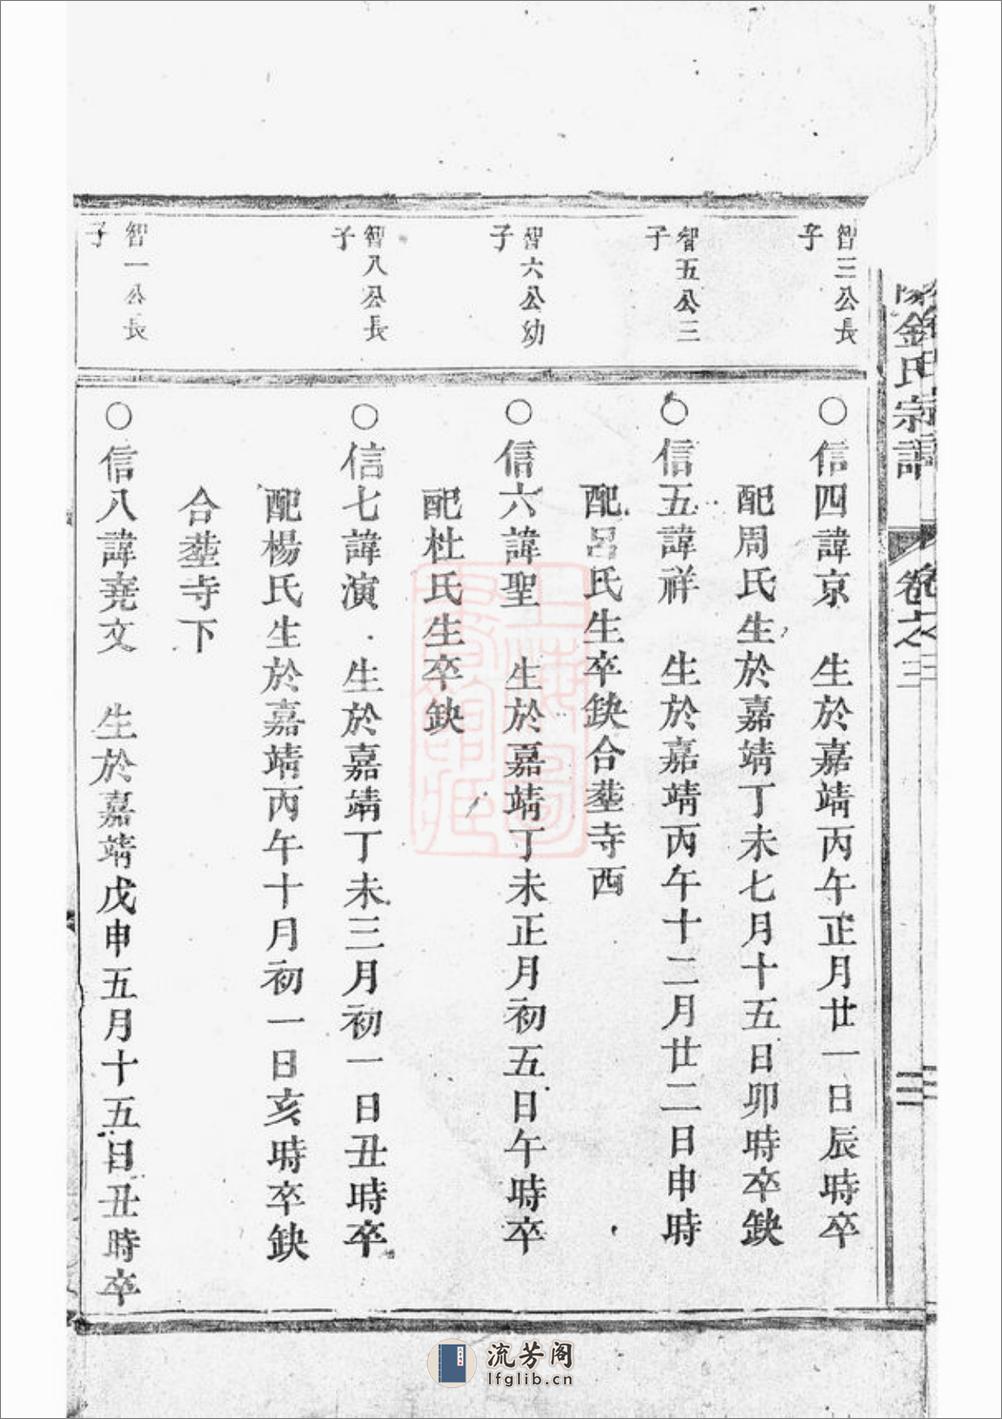 金氏宗譜
卷之三
智三公長
子
○信四諱京　生於嘉靖丙午正月廿一日辰時卒
配周氏生於嘉靖丁未七月十五日卯時卒缺
智五公三
子
○信五諱祥　生於嘉靖丙午十二月廿二日申時
配呂氏生卒缺合塟寺西
智六公幼
子
○信六諱聖　生於嘉靖丁未正月初五日午時卒
配杜氏生卒缺
智八公長
子
○信七諱演　生於嘉靖丁未三月初一日丑時卒
配楊氏生於嘉靖丙午十月初一日亥時卒缺
合塟寺下
智一公長
子
○信八諱堯文　生於嘉靖戊申五月十五日丑時卒
上海圖書館藏
流芳阁
lfglib.cn